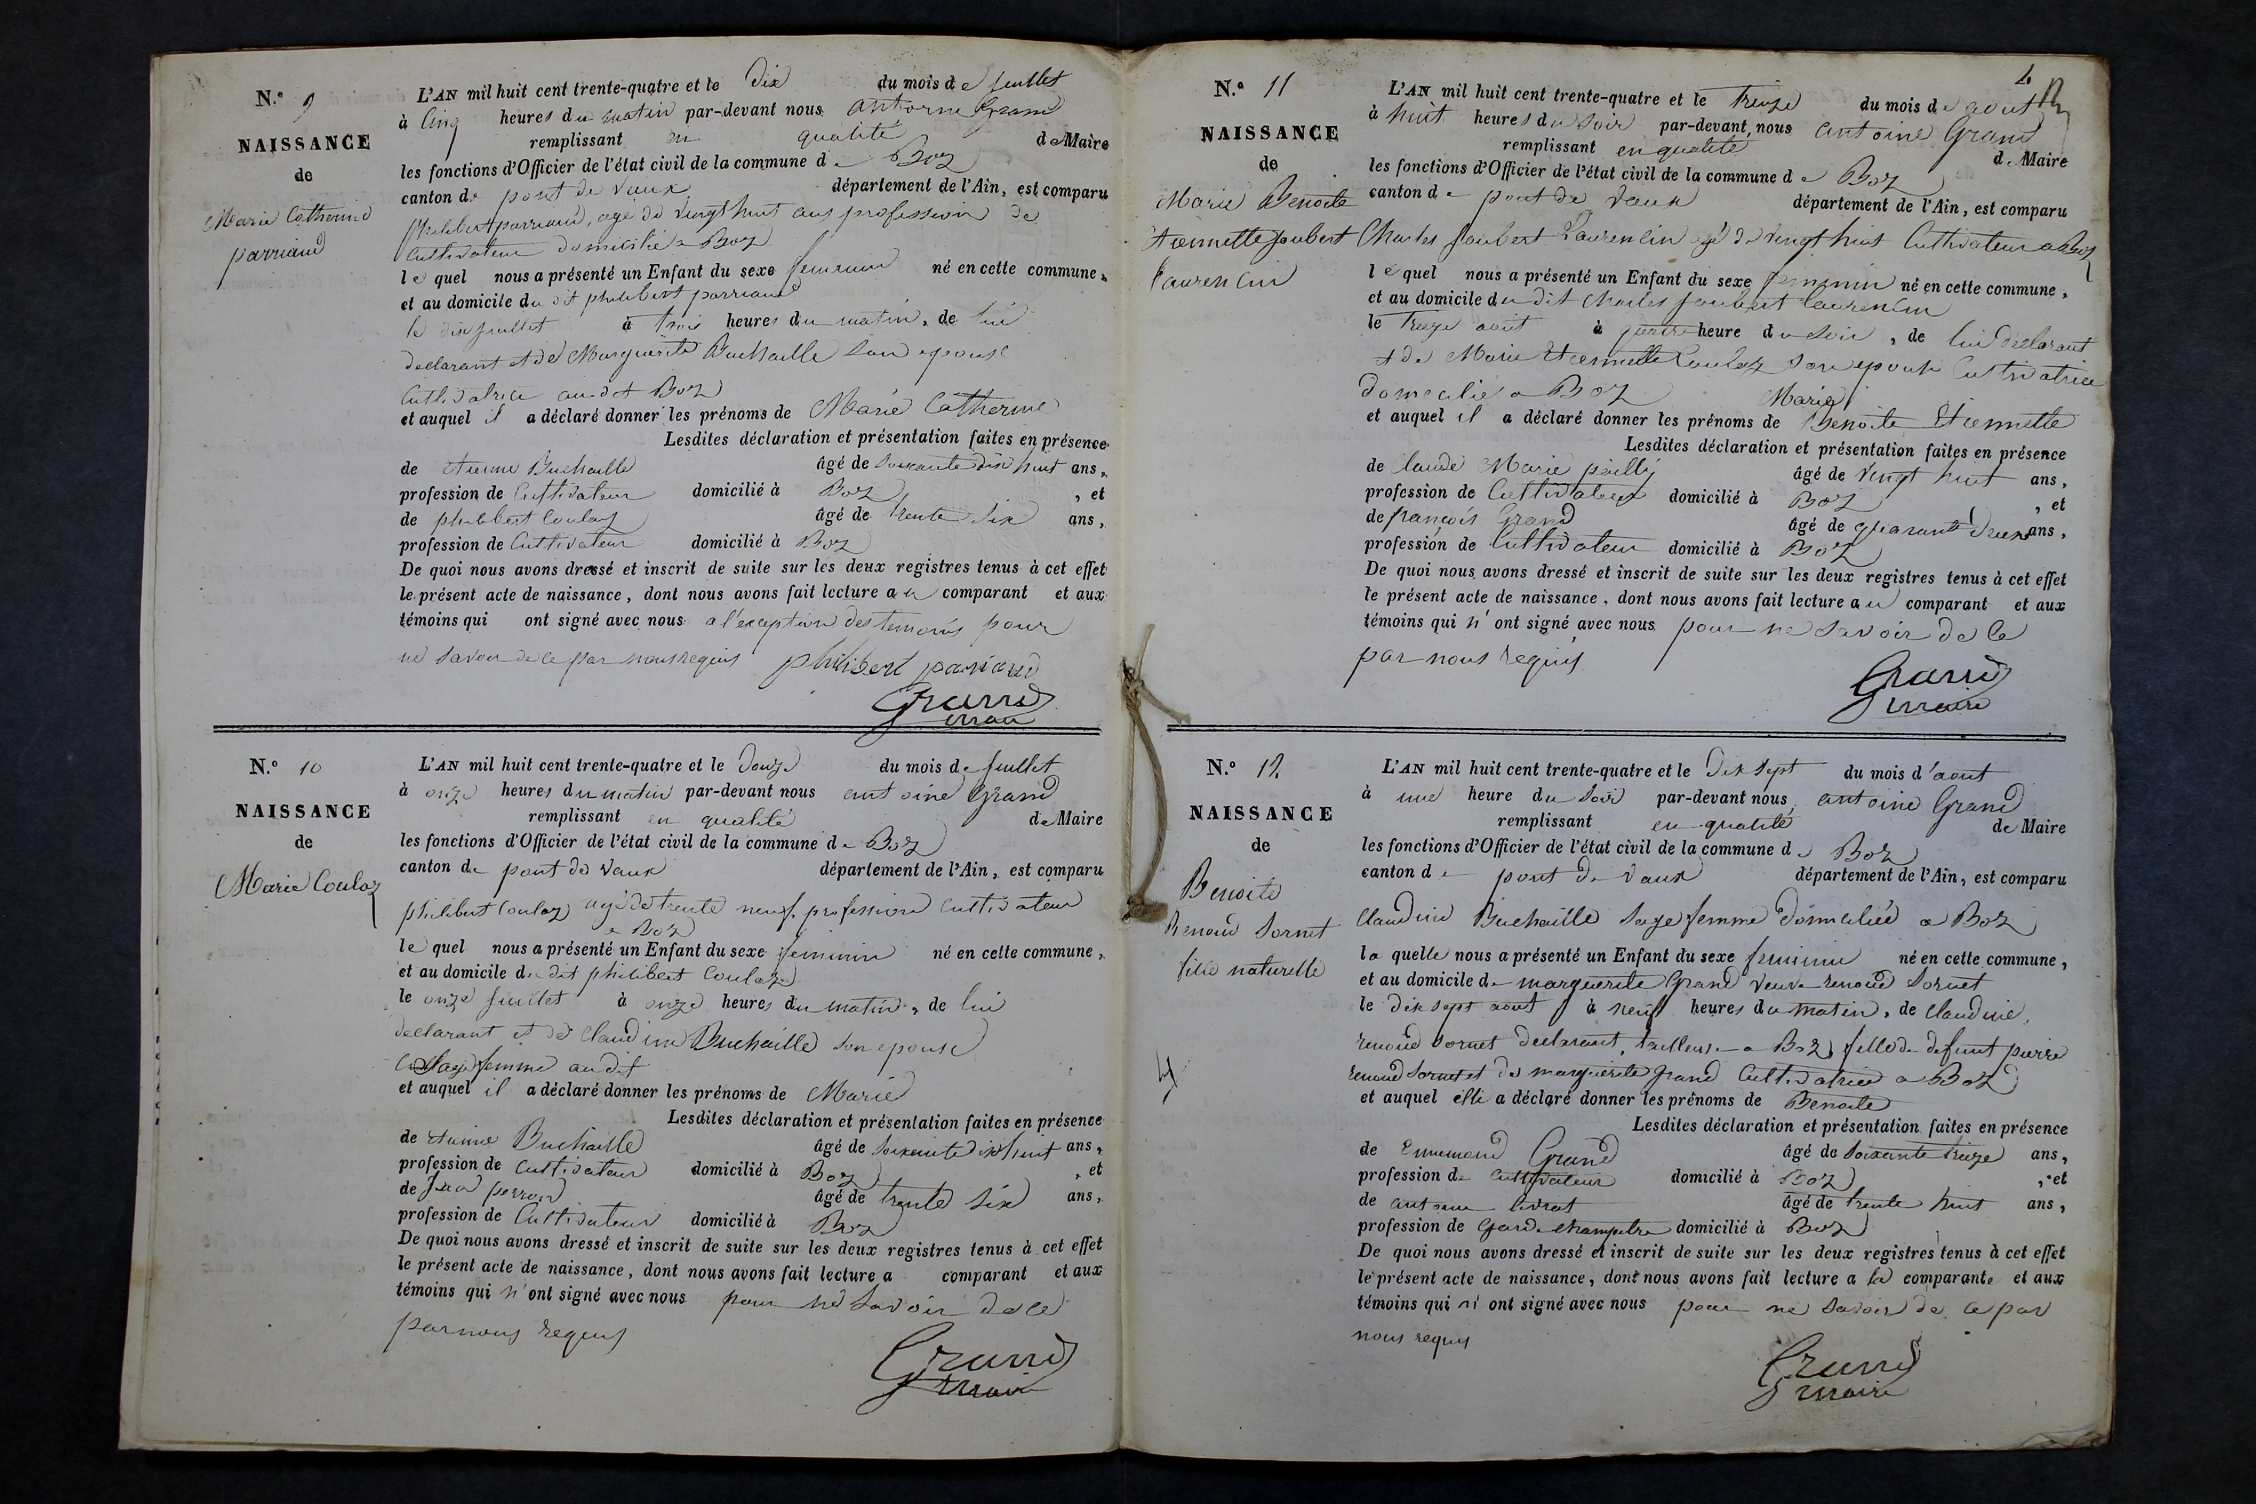 N.° 9
NAISSANCE
de
Marie Catherine
parriaud
L'AN mil huit cent trente-quatre et le Dix du mois de juillet
à Cinq heures du matin par-devant nous antoine Grand
remplissant en qualité de Maire
les fonctions d'Officier de l'état civil de la commune de Boz
canton de pont de vaux département de l'Ain, est comparu
philibert parriaud, agé de vingt huit ans profession de
Cultivateur domicilié a Boz
le quel nous a présenté un Enfant du sexe feminin né en cette commune,
et au domicile du dit philibert parriaud
le dix juillet à trois heures du matin, de lui
declarant et de Marguerite Buchaille son epouse
Cultivatrice audit Boz
et auquel il a déclaré donner les prénoms de Marie Catherine
Lesdites déclaration et présentation faites en présence
de etienne Buchaille âgé de soixante dix huit ans,
profession de Cultivateur domicilié à Boz, et
de philibert Coulaz âgé de trente six ans,
profession de Cultivateur domicilié à Boz
De quoi nous avons dressé et inscrit de suite sur les deux registres tenus à cet effet
le présent acte de naissance, dont nous avons fait lecture au comparant et aux
témoins qui ont signé avec nous a l'exception des temoins pour
ne savoir de ce par nous requis philibert parriaud
Grand
maire
N.° 10
NAISSANCE
de
Marie Coulaz
L'AN mil huit cent trente-quatre et le Douze du mois de juillet
à onze heures du matin par-devant nous antoine Grand
remplissant en qualité de Maire
les fonctions d'Officier de l'état civil de la commune de Boz
canton de pont de vaux département de l'Ain, est comparu
philibert Coulaz agé de trente neuf, profession Cultivateur
a Boz
le quel nous a présenté un Enfant du sexe feminin né en cette commune,
et au domicile du dit philibert Coulaz
le onze juillet à onze heures du matin, de lui
declarant et de Claudine Buchaille son epouse
Sage femme audit
et auquel il a déclaré donner les prénoms de Marie
Lesdites déclaration et présentation faites en présence
de etienne Buchaille âgé de soixante dix huit ans,
profession de Cultivateur domicilié à Boz, et
de âgé de trente six ans,
profession de Cultivateur domicilié à Boz
De quoi nous avons dressé et inscrit de suite sur les deux registres tenus à cet effet
le présent acte de naissance, dont nous avons fait lecture a comparant et aux
témoins qui n'ont signé avec nous pour ne savoir de ce
par nous requis
Grand
maire
4
N.° 11
NAISSANCE
de
Marie Benoite
Etiennette joubert
Laurencin
L'AN mil huit cent trente-quatre et le Treize du mois de aout
à huit heures du soir par-devant nous antoine Grand
remplissant en qualité de Maire
les fonctions d'Officier de l'état civil de la commune de Boz
canton de pont de vaux département de l'Ain, est comparu
Charles joubert Laurencin agé de vingt huit Cultivateur a Boz
le quel nous a présenté un Enfant du sexe feminin né en cette commune,
et au domicile du dit Charles joubert Laurencin
le Treize aout à quatre heure du soir, de lui declarant
et de Marie Etiennette Coulaz son epouse Cultivatrice
domicilié a Boz Marie
et auquel il a déclaré donner les prénoms de Benoite Etiennette
Lesdites déclaration et présentation faites en présence
de Claude Marie pailly âgé de vingt huit ans,
profession de Cultivateur domicilié à Boz, et
de françois Grand âgé de quarante deux ans,
profession de Cultivateur domicilié à Boz
De quoi nous avons dressé et inscrit de suite sur les deux registres tenus à cet effet
le présent acte de naissance, dont nous avons fait lecture au comparant et aux
témoins qui n'ont signé avec nous pour ne savoir de ce
par nous requis
Grand
maire
N.° 12
NAISSANCE
de
Benoite
Renoud Sornet
fille naturelle
L'AN mil huit cent trente-quatre et le Dix sept du mois d'aout
à une heure du soir par-devant nous antoine Grand
remplissant en qualité de Maire
les fonctions d'Officier de l'état civil de la commune de Boz
canton de pont de vaux département de l'Ain, est comparu
Claudine Buchaille sage femme domiciliée a Boz
la quelle nous a présenté un Enfant du sexe feminin né en cette commune,
et au domicile de marguerite Grand veuve renoud Sornet
le dix sept aout à neuf heures du matin, de Claudine
renoud Sornet declarant, tailleuse a Boz fille de defunt pierre
renoud Sornet et de marguerite grand Cultivatrice a Boz
et auquel elle a déclaré donner les prénoms de Benoite
Lesdites déclaration et présentation faites en présence
de Ennemond Grand âgé de soixante treize ans,
profession de cultivateur domicilié à Boz, et
de antoine livrat âgé de trente huit ans,
profession de Garde champetre domicilié à Boz
De quoi nous avons dressé et inscrit de suite sur les deux registres tenus à cet effet
le présent acte de naissance, dont nous avons fait lecture a la comparante et aux
témoins qui n'ont signé avec nous pour ne savoir de ce par
nous requis
Grand
maire